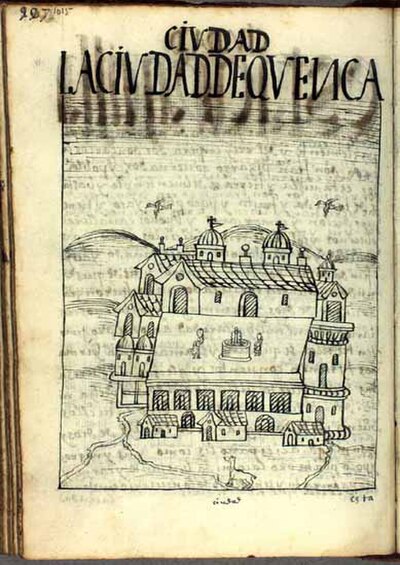 1015
CIVDAD
LACIVDADDEQVENCA
ciudad
esta